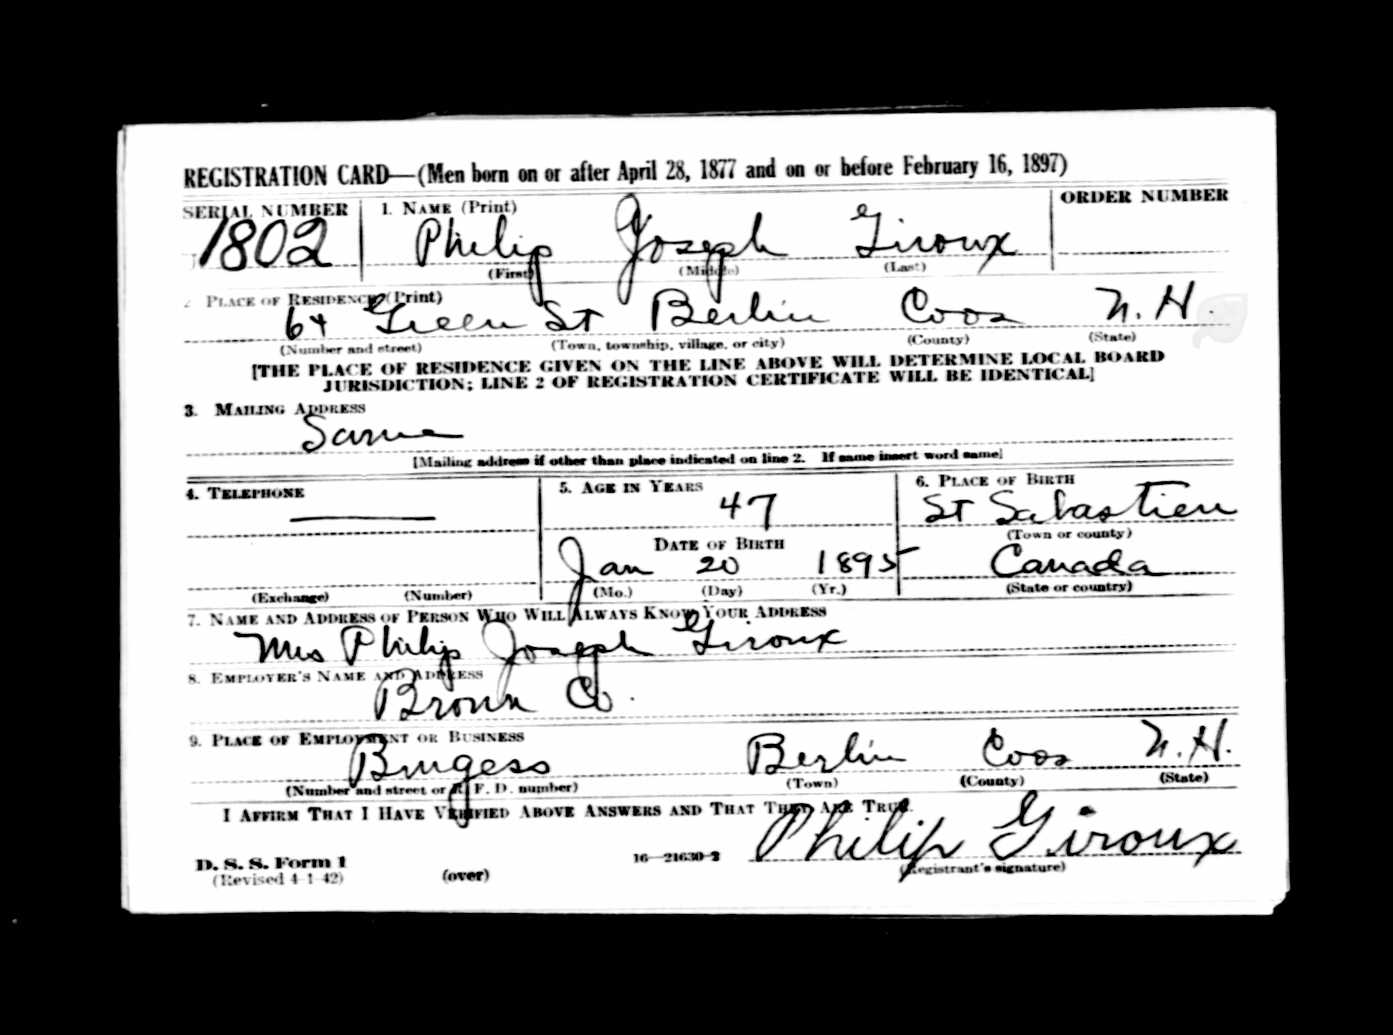 REGISTRATION CARD—(Men born on or after April 28, 1877 and on or before February 16, 1897)
SERIAL NUMBER 1. NAME (Print) ORDER NUMBER
1802 Philip Joseph Giroux
(First) (Middle) (Last)
2. PLACE OF RESIDENCE (Print)
64 Green St Berlin Coos N. H.
(Number and street) (Town, township, village, or city) (County) (State)
[THE PLACE OF RESIDENCE GIVEN ON THE LINE ABOVE WILL DETERMINE LOCAL BOARD
JURISDICTION; LINE 2 OF REGISTRATION CERTIFICATE WILL BE IDENTICAL]
3. MAILING ADDRESS
Same
[Mailing address if other than place indicated on line 2. If same insert word same]
4. TELEPHONE 5. AGE IN YEARS 6. PLACE OF BIRTH
47 St Sabastien
DATE OF BIRTH (Town or county)
Jan 20 1895 Canada
(Exchange) (Number) (Mo.) (Day) (Yr.) (State or country)
7. NAME AND ADDRESS OF PERSON WHO WILL ALWAYS KNOW YOUR ADDRESS
Mrs Philip Joseph Giroux
8. EMPLOYER'S NAME AND ADDRESS
Brown Co.
9. PLACE OF EMPLOYMENT OR BUSINESS
Burgess Berlin Coos N. H.
(Number and street or R. F. D. number) (Town) (County) (State)
I AFFIRM THAT I HAVE VERIFIED ABOVE ANSWERS AND THAT THEY ARE TRUE.
Philip Giroux
D. S. S. Form 1 16—21630-2 (Registrant's signature)
(Revised 4-1-42) (over)